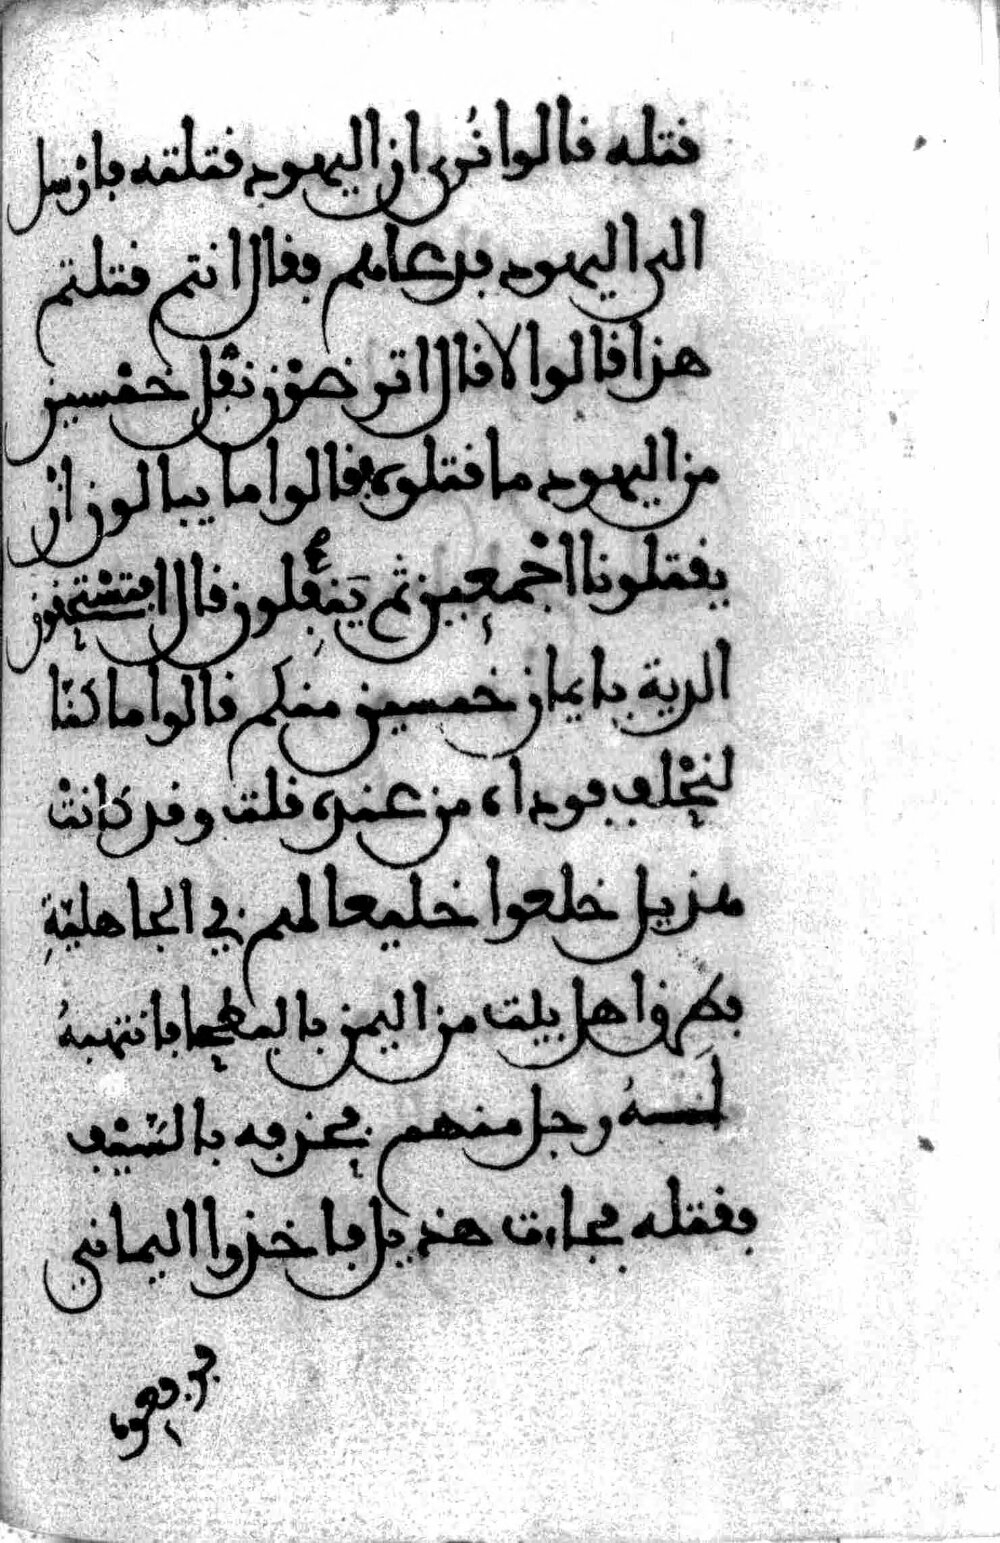 قتله قالوا نُرى ان اليهود قتلته فارْسل
الى اليهود فدعاهم فقال انتم قتلتم
هذا قالوا لا قال اترضوْن نفْل خمْسين
من اليهود ما قتلوه فقالوا ما يبالون انْ
يقتلونا اجْمعين ثم يَنتفلون قال افتسْتحقون
الدية بايمان خمسين منكم قالوا ما كنّا
لنحْلف فوداه من عنده قلت وقد كانتْ
هذيل خلعوا خليعا لهم في الجاهليّةِ
فطرق اهل بيت من اليمن بالبطحا فانتبهَ
لَــه رجل منهم فحذفه بالسّيْف
فقتله فجاءت هذيل فاخذوا اليماني
فرفعوه